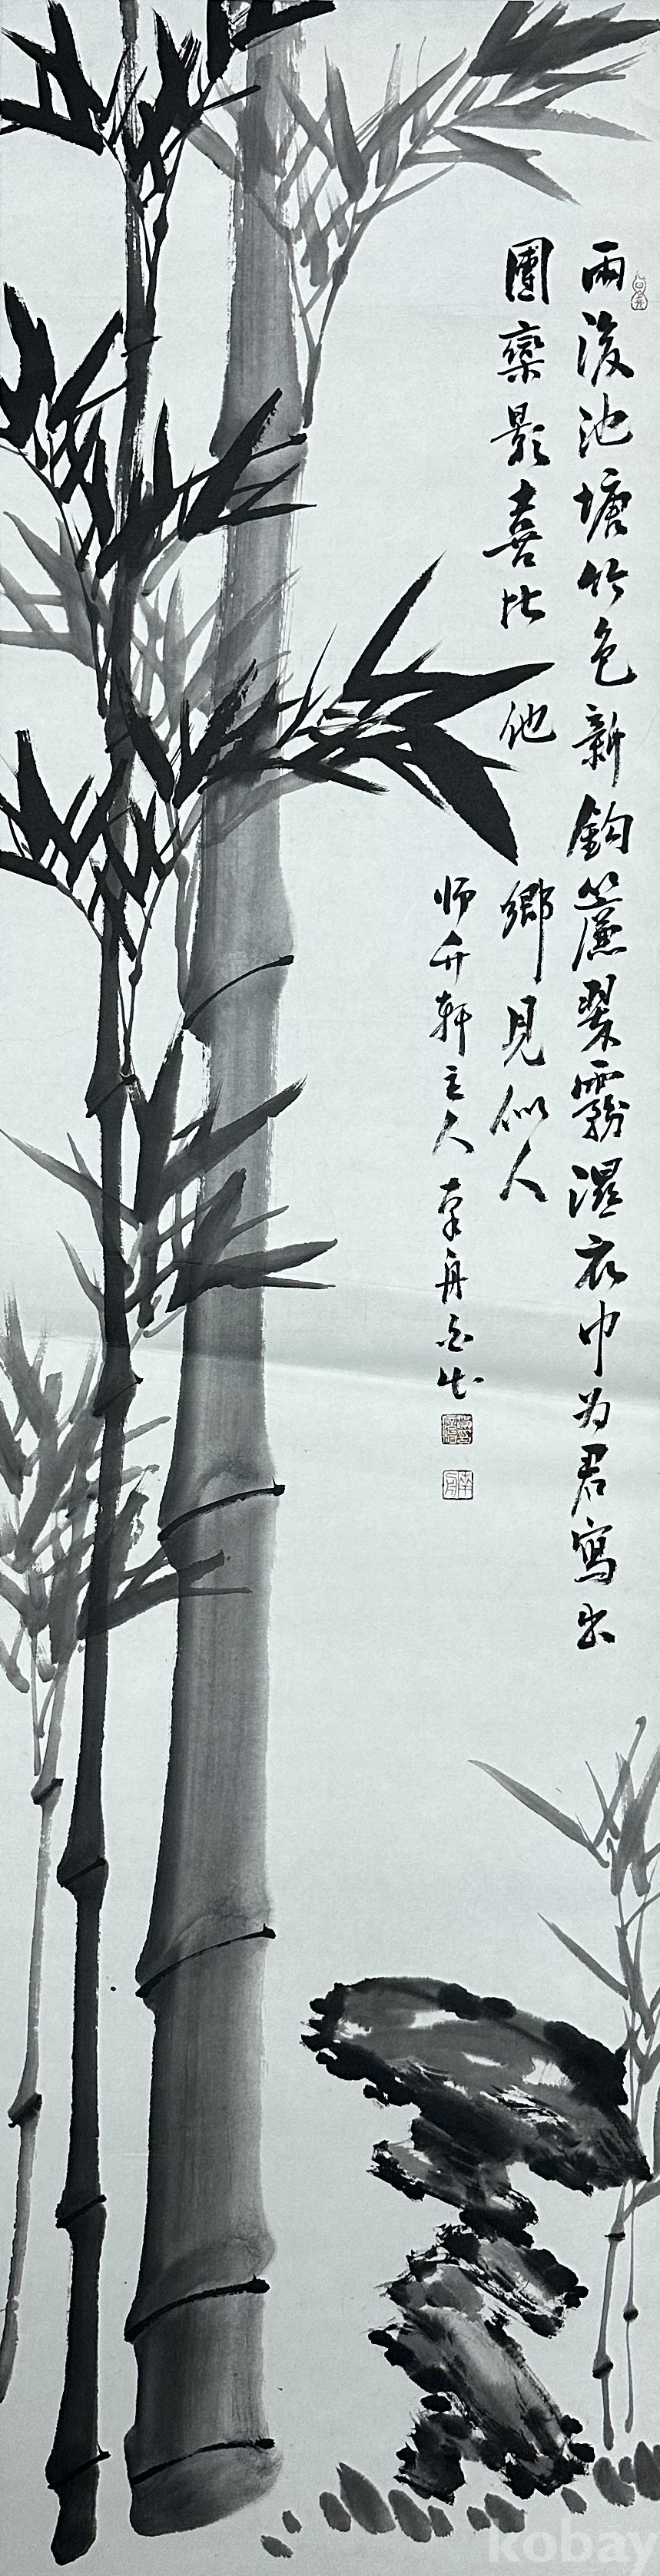 雨後池塘竹色新鉤簾翠霧濕衣巾为君寫出
團欒影喜比他鄉見似人
师竹軒主人 舟
kobay